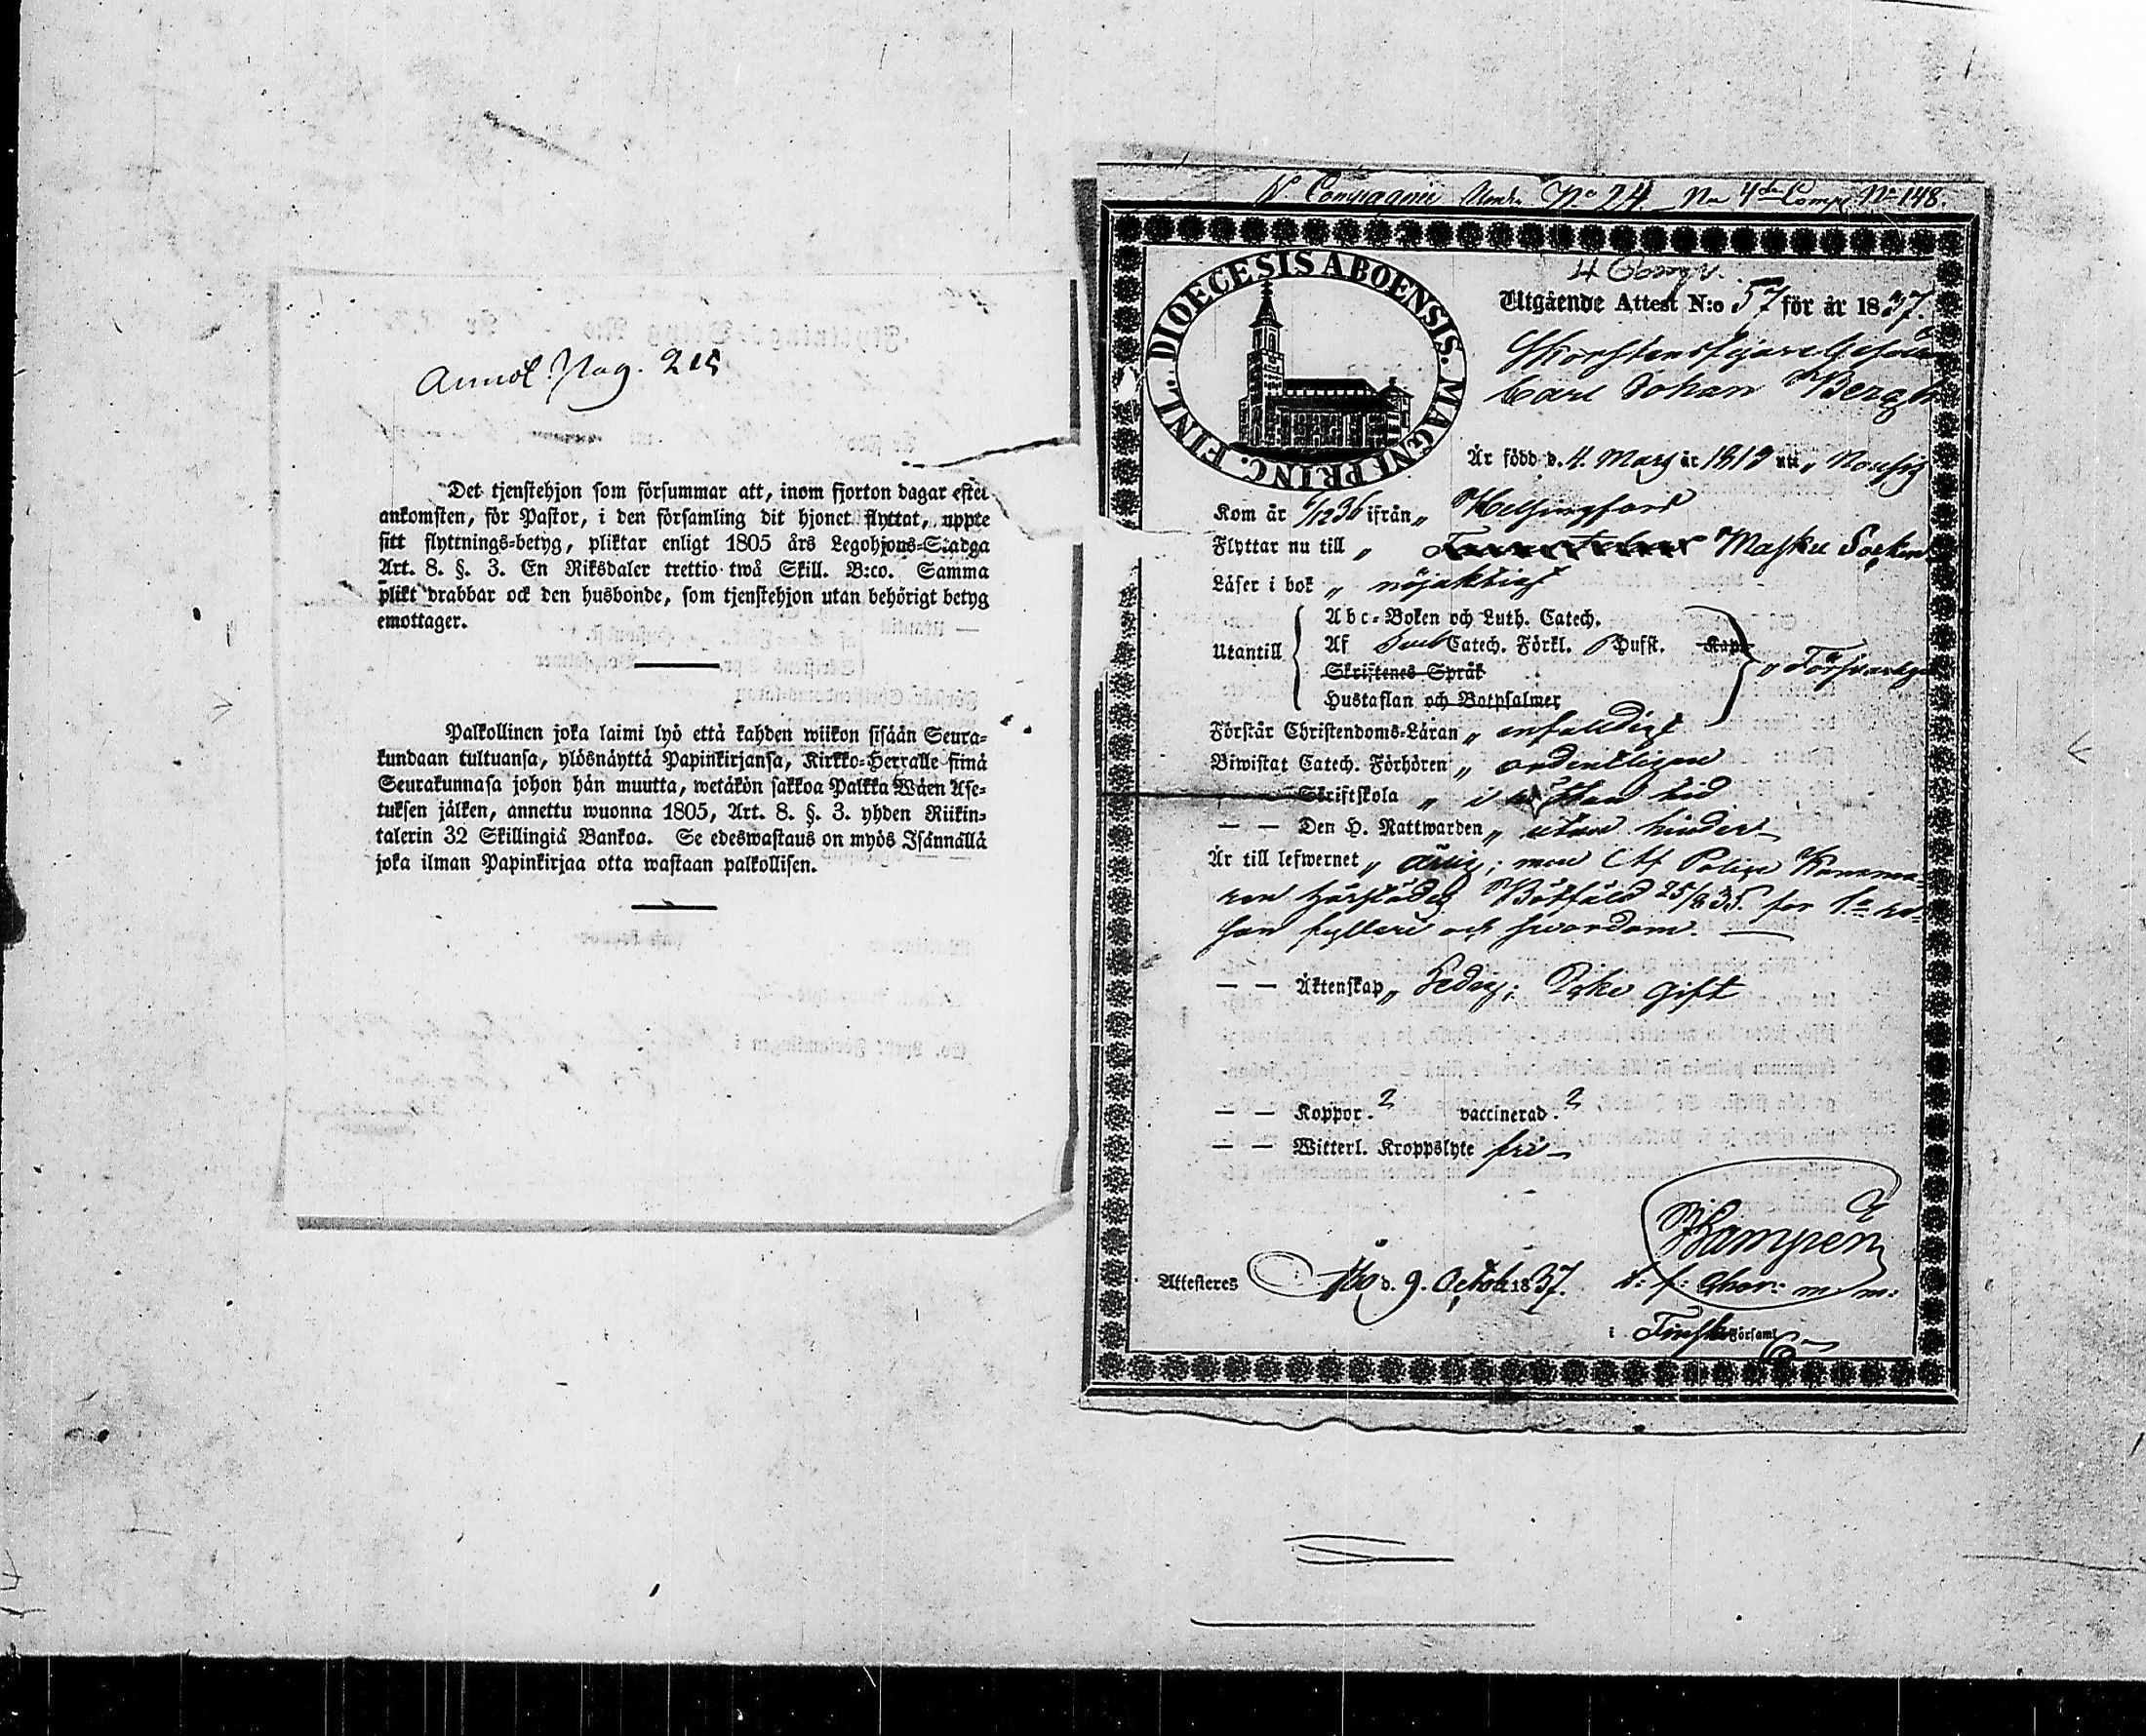 Annot. Pag. 215
Det tjenstehjon som försummar att, inom fjorton dagar efter
ankomsten, för Pastor, i den församling dit hjonet flyttat, uppte
sitt flyttnings=betyg, pliktar enligt 1805 års Legohjons=Stadga
Art. 8. §. 3. En Riksdaler trettio två Skill. B:co. Samma
plikt drabbar ock den husbonde, som tjenstehjon utan behörigt betyg
emottager.
Palkollinen joka laimi lyö että kahden wiikon sisään Seura=
kundaan tultuansa, ylösnäyttä Papinkirjansa, Kirkko=Herralle siinä
Seurakunnasa johon hän muutta, wetäkön sakkoa Palkka Wäen Ase=
tuksen jälken, annettu wuonna 1805, Art. 8. §. 3. yhden Riikin=
talerin 32 Skillingiä Bankoa. Se edeswastaus on myös Isännällä
joka ilman Papinkirjaa otta wastaan palkollisen.
N. Compagnie Undr. No 24. Na 4de Comp. No 148.
DIOECESIS ABOENSIS. MAGNI PRINC. FINL.
Utgående Attest N:o 57 för år 1837.
Skorstensfejare Gesällen
Carl Johan Bergh
Är född d. 4. Mars år 1818 uti „ Nousis
Kom år 6/12 36 ifrån „ Helsingfors
Flyttar nu till „ Masku Socken
Läser i bok „ nöjaktigt
Utantill
Abc=Boken och Luth. Catech.
Af Catech. Förkl. Hufst. Kap.
Skriftenes Språk
Hustaflan och Botpsalmer
„ Försvarligt
Förstår Christendoms=Läran „ enfaldigt
Biwistat Catech. Förhören „ ordentligen
Skriftskola „ i tid
— — Den H. Nattwarden „ utan hinder
Är till lefwernet „ ärlig; men Af Polise Kamma=
ren härstädes Bötfäld 25/8 35. för 1:a re=
san fylleri och swordom. —
— — Äktenskap „ Ledig; Icke gift
— — Koppor. ? vaccinerad. ?
— — Witterl. Kroppslyte fri —
Attesteres Åbo d. 9. Octob. 1837.
i Finska Församl.